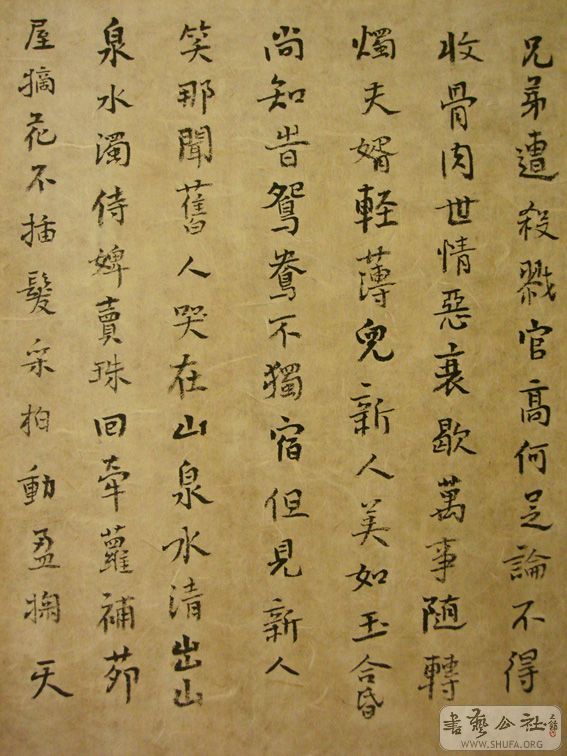 兄弟遭殺戮官高何足論不得
收骨肉世情惡衰歇萬事隨轉
燭夫婿輕薄兒新人美如玉合昏
尚知昔鴛鴦不獨宿但見新人
笑那聞舊人哭在山泉水清出山
泉水濁侍婢賣珠回牽蘿補茆
屋摘花不插髮采柏動盈掬天
書藝公社
WWW.SHUFA.ORG